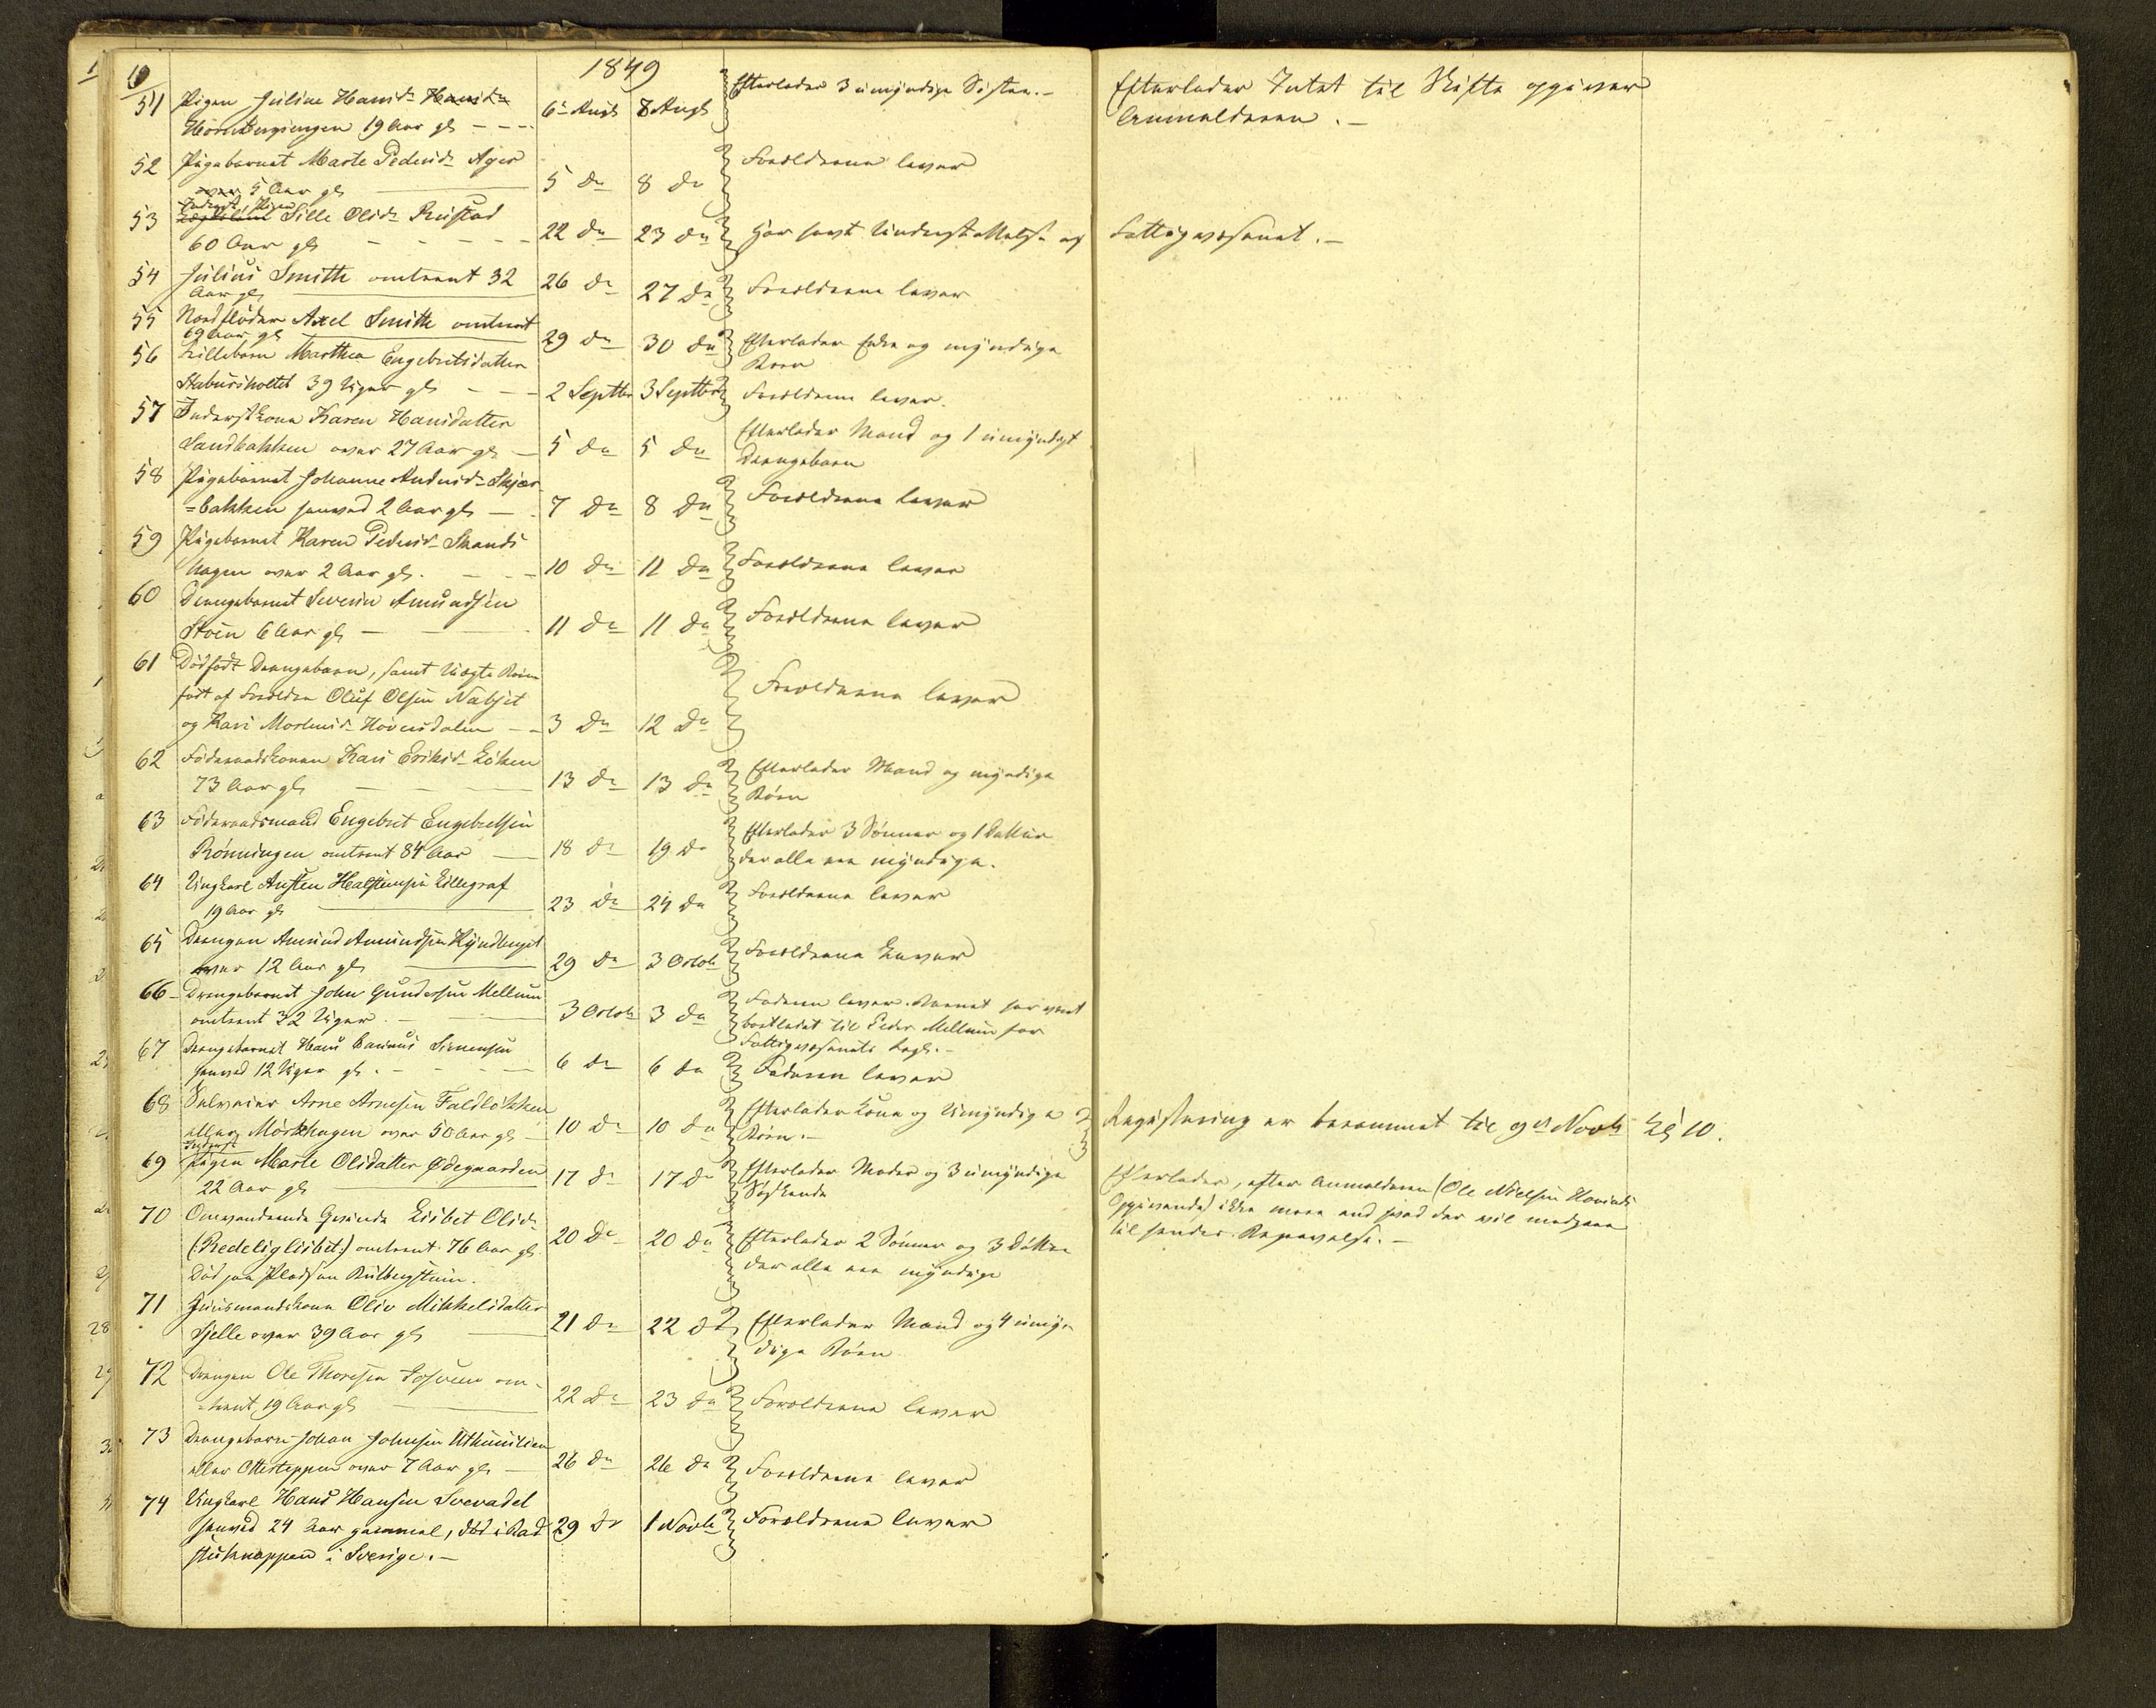 10
1849
51 Pigen Juline Hansdr Hansdr 6te Augt 8 Augt Efterlader 3 umyndige Søstre.- Efterlader Intet til Skifte opgiver
19 Aar gl - - - Anmelderen.-
52 Pigebarnet Marte Pedersdr Ager Forældrene lever
over 5 Aar gl 5 do 8 do
Inderst Pigen
53 Lægdslem Sille Olsdr Rustad 22 do 23 do Har havt Understøttelse af Fattigvæsenet.-
60 Aar gl - - - - -
54 Julius Smith omtrent 32 26 do 27 do Forældrene lever
Aar gl
55 Axel Smith omtrent 29 do 30 do Efterlader Enke og myndige
69 Aar gl Børn
56 Lillebarn Marthea Engebretsdatter
Stabursholtet 39 Uger gl - - - 2 Septbr 3 Septbr Forældrene lever.
57 Inderstkone Karen Hansdatter Efterlader Mand og 1 umyndigt
Sandbakken over 27 Aar gl - 5 do 5 do Drengebarn
58 Pigebarnet Johanne Andersdr Skjær
=bakken henved 2 Aar gl - 7 do 8 do Forældrene lever
59 Pigebarnet Karen Pedersdr Strands
hagen over 2 Aar gl. - - - 10 do 11 do Forældrene lever
60 Drengebarnet Severin Amundsen
Stoen 6 Aar gl - - 11 do 11 do Forældrene lever
61 Dødfødt Drengebarn, samt Uægte Barn
født af Forældre Oluf Olsen Nabset Forældrene lever
og Kari Mortensdr Hovensdalen - - 3 do 12 do
62 Föderaadskonen Kari Eriksdr Löken Efterlader Mand og myndige
73 Aar gl - - - 13 do 13 do Börn
63 Föderaadsmand Engebret Engebretsen Efterlader 3 Sønner og 1 Datter
Rønningen omtrent 84 Aar - 18 do 19 do der alle ere myndige.
64 Ungkarl Austen Halstensen Lillegraf Forældrene lever
19 Aar gl 23 do 24 do
65 Drengen Amund Amundsen Kyndberget Forældrene Lever
over 12 Aar gl 29 do 3 Octob
66- Drengebarnet John Gundersen Mellum 3 Octob 3 do Faderen lever. Barnet har været
omtrent 32 Uger.- bortladt til Peder Mellum for
67 Drengebarnet Hans Simensen Fattigvæsenets Regn.-
henved 12 Uger gl. - - - 6 do 6 do Faderen lever
68 Selveier Arne Arnesen Faldløkken Efterlader Kone og Umyndige Registrering er berammet til 9de Novb Kl 10.
eller Mörkhagen over 50 Aar gl - 10 do 10 do Børn.-
Inderst
69 Pigen Marte Olsdatter Ødegaarden 17 do 17 do Efterlader Moder og 3 umyndige Efterlader, efter Anmelderen (Ole Nielsen Hovinds
22 Aar gl Søskende Opgivende) ikke mere end hvad der vil medgaae
70 Omvandrende Qvinde Lisbet Olsdr 20 do 20 do Efterlader 2 Sønner og 3 Døttre til hendes Begravelse.-
(:Redeliglisbet:) omtrent 76 Aar gl. der alle ere myndige
Død paa Pladsen Kulbergstuen.
71 Huusmandskone Oliv Mikkelsdatter Efterlader Mand og 4 umyn
Sjelle over 39 Aar gl 21 do 22 do dige Børn
72 Drengen Ole Thoresen om=
=trent 19 Aar gl 22 do 23 do Forældrene lever
73 Drengebarn Johan Johnsen
eller Ottesteppen over 7 Aar gl - 26 do 26 do Forældrene lever
74 Ungkarl Hans Hansen Svevadel
henved 24 Aar gammel, død i Rad 29 do 1 Novb Forældrene lever
stuknappen i Sverige.-